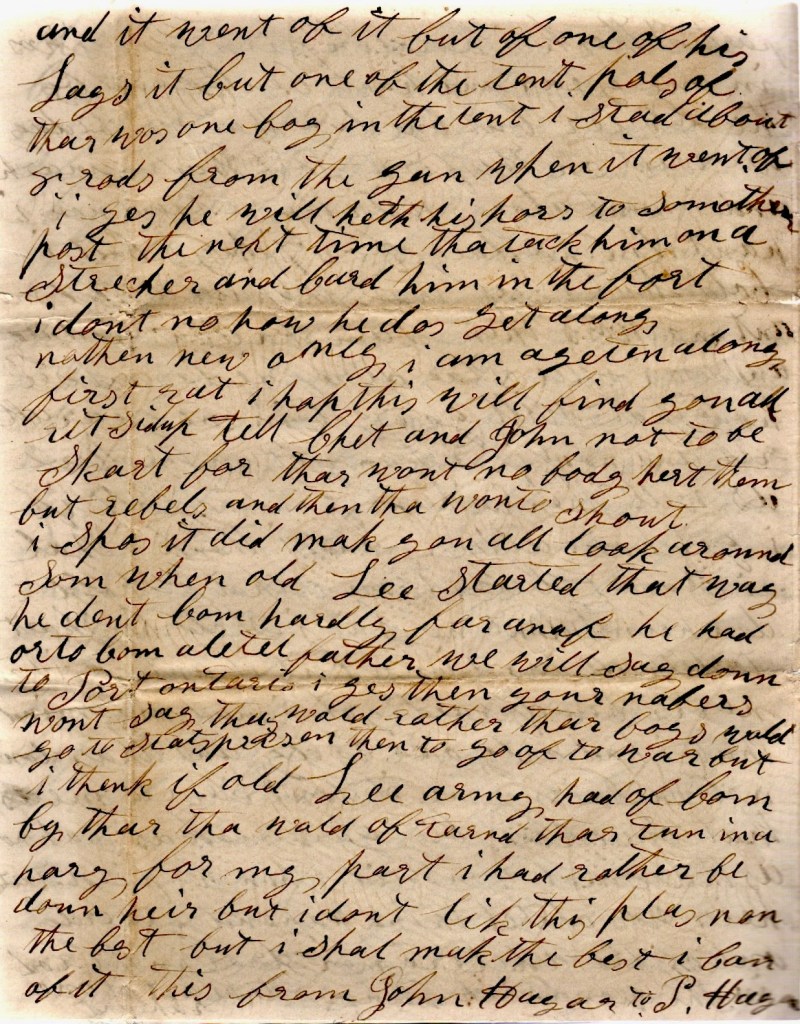 and it went of it but of one of his
Lags it but one of the tent pols of
thar was one boy in the tent i stad about
rods from the gun when it went of
i ges he will heth his hors to somother
post the next time tha tack him on a
strecher and card him in the fort
i dont no how he dos get along
nothen new only i am a geten along
first rat i hap this will find you all
rit sid up tell Chet and John not to be
skart for thar wont no body hert them
but rebels and then tha wonto shout
i spos it did mak you all look around
som when old Lee started that way
he dent com hardly far anaf he had
orto com aletel father we will say down
to Port ontario i ges then your nabers
wont say thay wold rather thar boys wold
go to stats prison then to go of to war but
i thenk if old Lee army had of com
by thar tha wald of turnd thar tun in a
hary for my part i had rather be
down heir but i dont lik this plas non
the best but i shal mak the best i can
of it this from John Hagar to P. Hagar